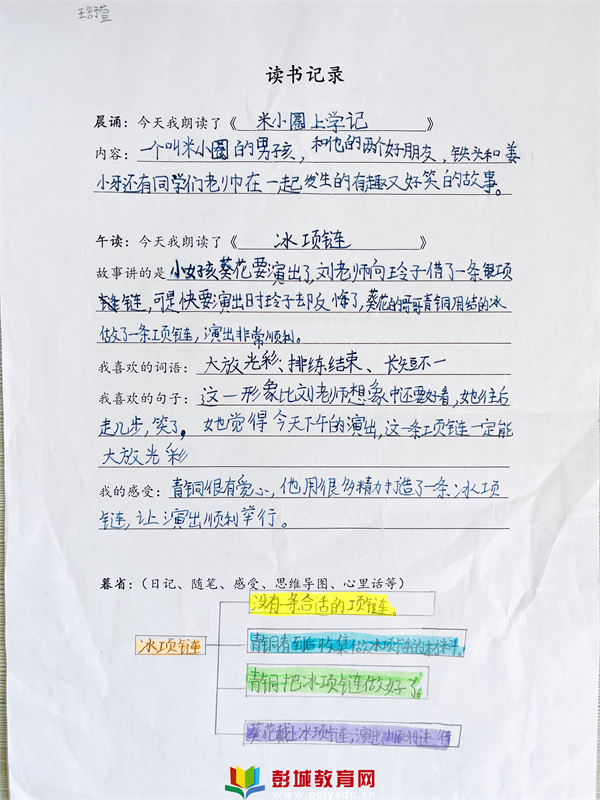 读书记录
晨诵：今天我朗读了《 米小圈上学记 》
内容：一个叫米小圈的男孩，和他的两个好朋友，铁头和姜
小牙还有同学们老师在一起发生的有趣又好笑的故事。
午读：今天我朗读了《 冰项链 》
故事讲的是 小女孩葵花要演出了，刘老师向玲子借了一条银项
链，可是快要演出时玲子却反悔了，葵花的哥哥青铜用结的冰
做了一条项链，演出非常顺利。
我喜欢的词语：大放光彩、排练结束、长短不一
我喜欢的句子：这一形象比刘老师想象中还要好看，她往后
走几步，笑了。她觉得今天下午的演出，这一条项链一定能
大放光彩
我的感受：青铜很有爱心，他用很多精力打造了一条冰项
链，让演出顺利举行。
暮省：（日记、随笔、感受、思维导图、心里话等）
没有一条合适的项链。
冰项链
青铜看到后收集做冰项链的材料。
青铜把冰项链做好了。
葵花戴上冰项链，演出顺利进行
彭城教育网
www.pcjyedu.cn